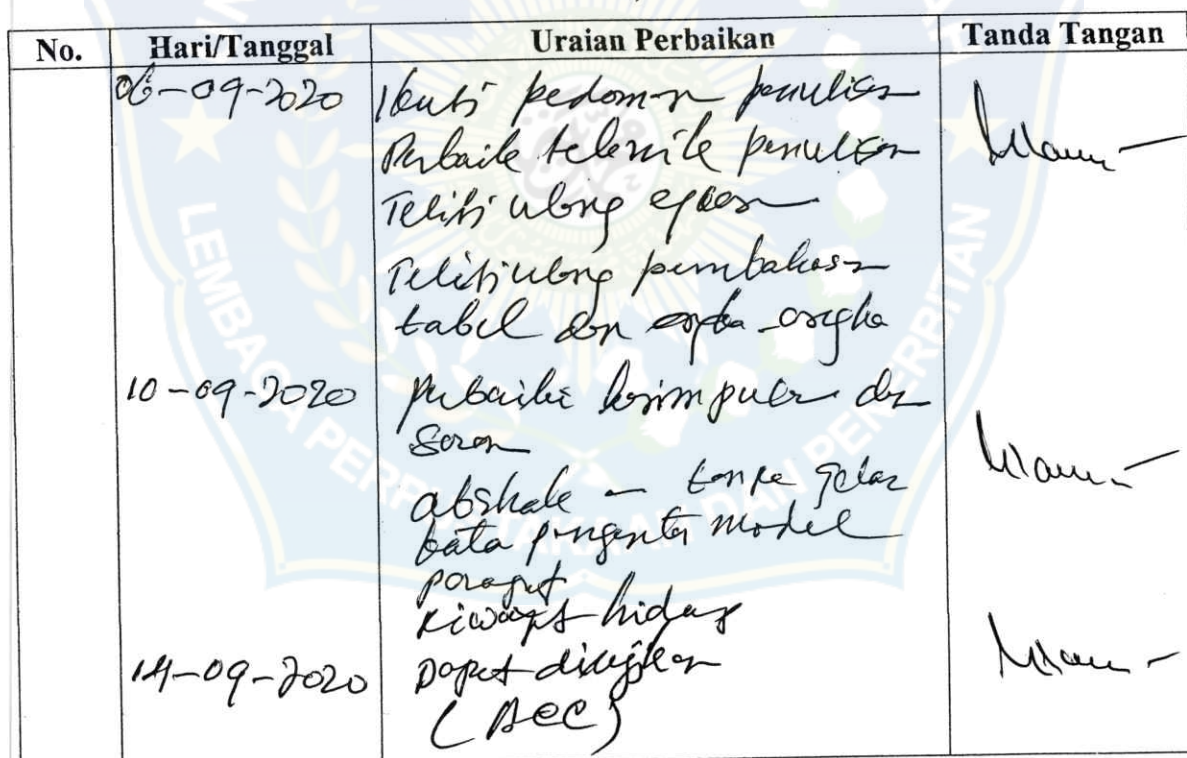 No. Hari/Tanggal Uraian Perbaikan Tanda Tangan
06-09-2020 Ikuti pedoman penulisan
Perbaiki teknik penulisan
Teliti ulang ejaan
Teliti ulang pembahasan
tabel dan angka-angka
10-09-2020 perbaiki kesimpulan dan
Saran
abstrak - tanpa gelar
kata pengantar model
paragraf
Riwayat hidup
14-09-2020 Dapat diujikan
(ACC)
LEMBAGA PERPUSTAKAAN DAN PENERBITAN